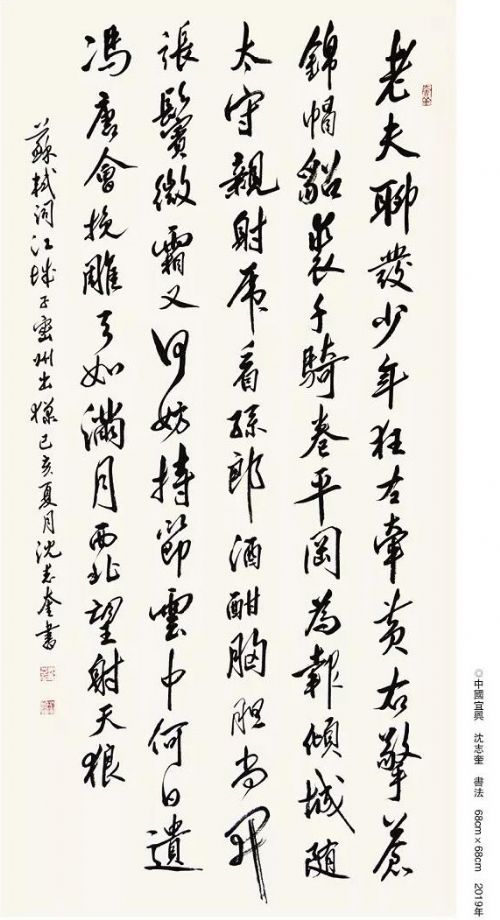 老夫聊發少年狂左牽黃右擎蒼
錦帽貂裘千騎卷平岡為報傾城隨
太守親射虎看孫郎酒酣胸胆尚開
張鬢微霜又何妨持節雲中何日遣
馮唐會挽雕弓如滿月西北望射天狼
蘇軾詞江城子密州出獵己亥夏月沈志奎書
◎中國宜興 沈志奎 書法 68cm×68cm 2019年